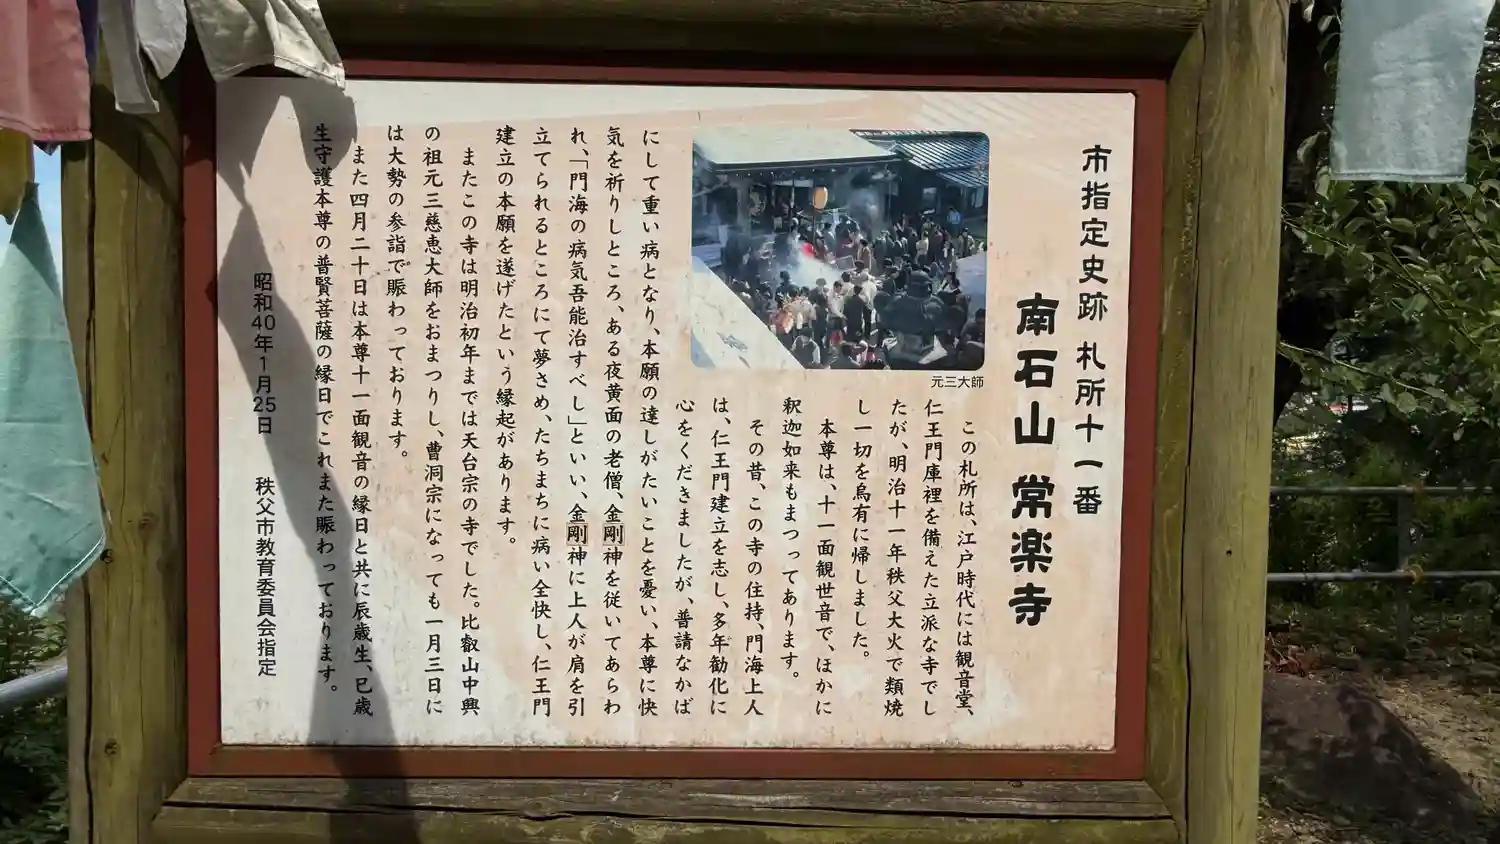 市指定史跡 札所十一番
南石山 常楽寺
この札所は、江戸時代には観音堂、
仁王門庫裡を備えた立派な寺でし
たが、明治十一年秩父大火で類焼
し一切を烏有に帰しました。
本尊は、十一面観世音で、ほかに
釈迦如来もまつってあります。
その昔、この寺の住持、門海上人
は、仁王門建立を志し、多年勧化に
心をくだきましたが、普請なかば
にして重い病となり、本願の達しがたいことを憂い、本尊に快
気を祈りしところ、ある夜黄面の老僧、金剛神を従いてあらわ
れ、「門海の病気吾能治すべし」といい、金剛神に上人が肩を引
立てられるところにて夢さめ、たちまちに病い全快し、仁王門
建立の本願を遂げたという縁起があります。
またこの寺は明治初年までは天台宗の寺でした。比叡山中興
の祖元三慈恵大師をおまつりし、曹洞宗になっても一月三日に
は大勢の参詣で賑わっております。
また四月二十日は本尊十一面観音の縁日と共に辰歳生、巳歳
生守護本尊の普賢菩薩の縁日でこれまた賑わっております。
昭和40年1月25日 秩父市教育委員会指定
元三大師